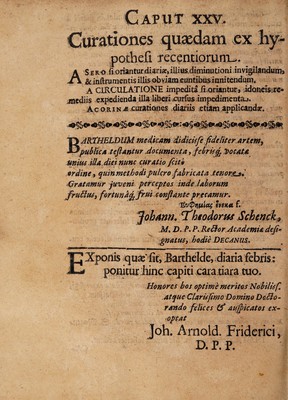 CAPUT XXV.
Curationes quædam ex hy-
pothesi recentiorum.
A SERO si oriantur diariæ, illius diminutioni invigilandum,
& instrumentis illis obviam euntibus innitendum.
A CIRCULATIONE impedita si oriantur, idoneis re-
mediis expedienda illa liberi cursus impedimenta.
Acorinæ curationes diariis etiam applicandæ.
BARTHELDUM medicam didicisse fideliter artem,
publica testantur documenta, febrisq; vocata
unius illa diei nunc curatio scitò
ordine, quin methodi pulcro fabricata tenore.
Gratamur juveni perceptos inde laborum
fructus, fortunáq; frui constante precamur.
Εὐφημίας ἕνεκα f.
Johann. Theodorus Schenck,
M. D. P. P. Rector Academiæ desi-
gnatus, hodiè DECANUS.
EXponis quæ sit, Barthelde, diaria febris:
ponitur hinc capiti cara tiara tuo.
Honores hos optimè meritos Nobiliss.
atque Clarissimo Domino Docto-
rando felices & auspicatos ex-
optat
Joh. Arnold. Friderici,
D. P. P.